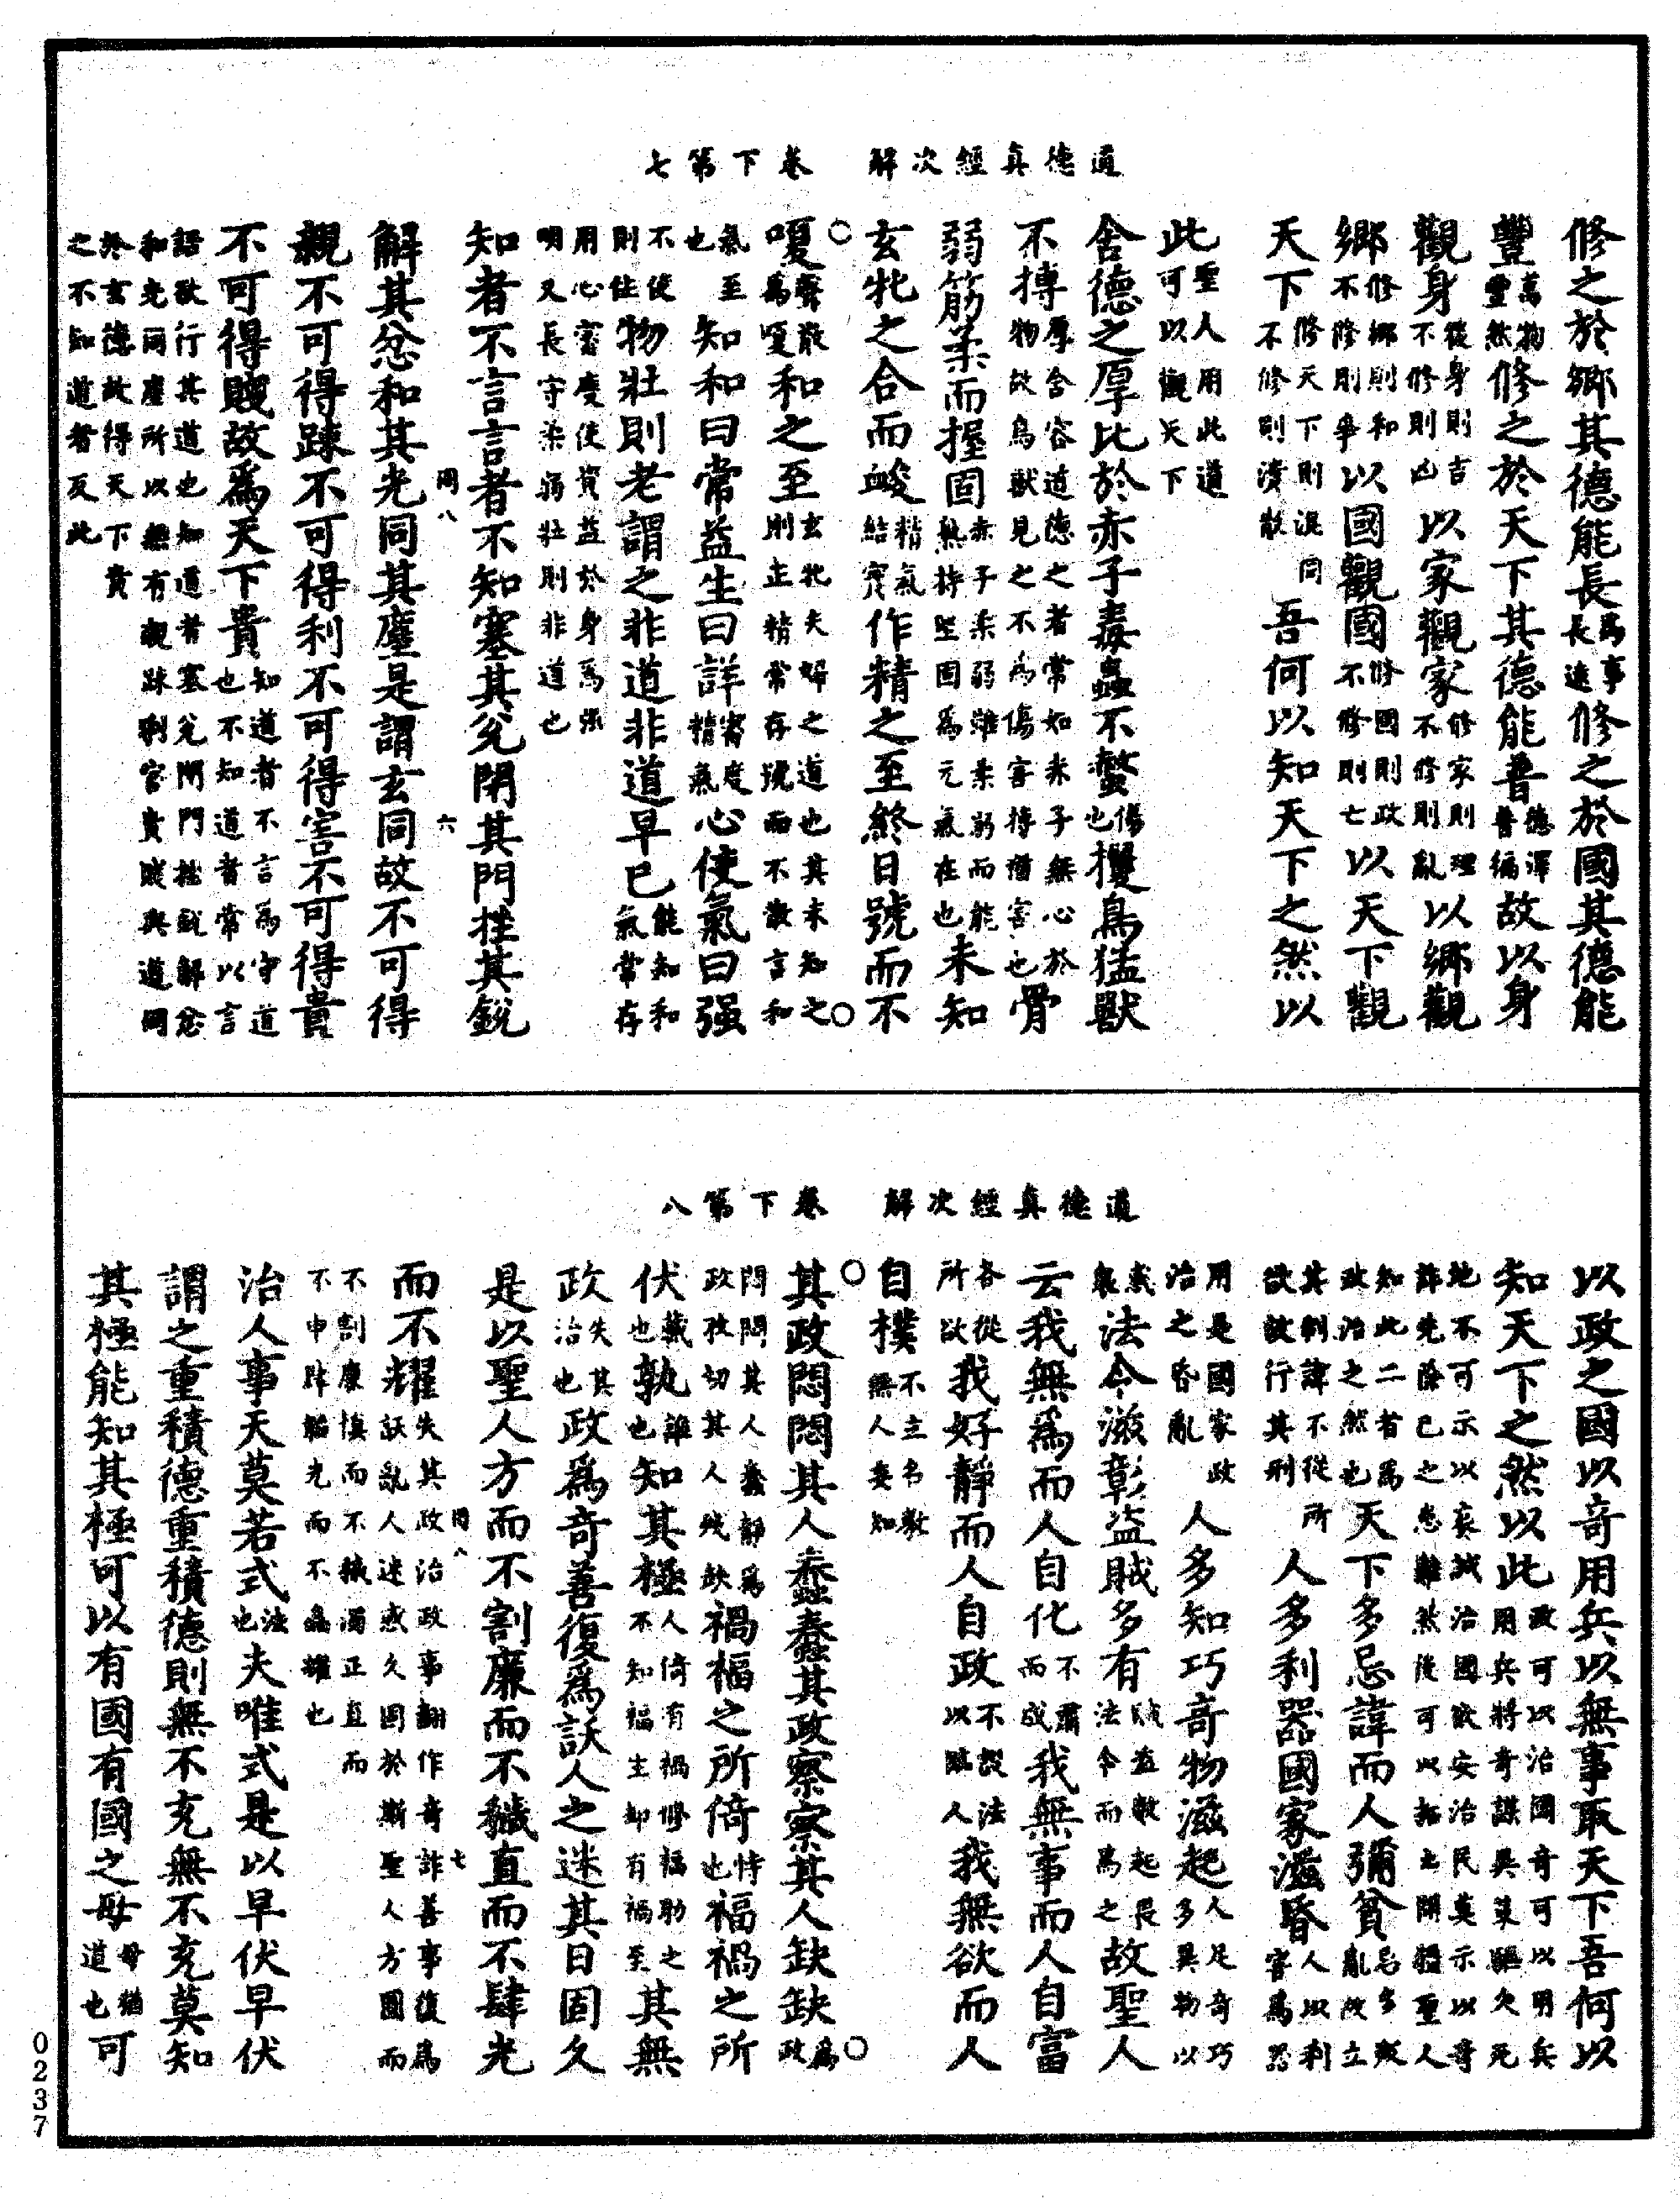 道德真經次解　卷下第七
修之於鄉其德能長長爲事遠修之於國其德能
豐萬物豐然修之於天下其德能普德澤普徧故以身
觀身從身則吉不修則凶以家觀家修家則理不修則亂以鄉觀
鄉修鄉則和不修則爭以國觀國修國則政不修則亡以天下觀
天下修天下則混同不修則潰散吾何以知天下之然以
此聖人用此道可以觀天下
含德之厚比於赤子毒蟲不螫傷也攫鳥猛獸
不摶厚含容道德之者常如赤子無心於物故鳥獸見之不爲傷害摶猶害也骨
弱筋柔而握固赤子柔弱雖柔弱而能熱持堅固爲元氣在也未知
玄牝之合而峻精氣結實作精之至終日號而不
嗄聲散爲嗄和之至玄牝夫婦之道也其未知之則正精常存號而不散言和
氣至也知和曰常益生曰詳審度精氣心使氣曰强
不使則住物壯則老謂之非道非道早已能知和氣常存
用心審度使資益於身爲强明又長守柔弱壯則非道也
知者不言言者不知塞其兌閉其門挫其銳
解其忿和其光同其塵是謂玄同故不可得
親不可得踈不可得利不可得害不可得貴
不可得賤故爲天下貴知道者不言爲守道也不知道者常以言
語欲行其道也知道者塞兌閉門挫銳解忿和光同塵所以無有親踈利害貴賤與道同
於玄德故得天下貴之不知道者反此
罔八　六
道德真經次解　卷下第八
以政之國以奇用兵以無事取天下吾何以
知天下之然以此政可以治國奇可以明兵用兵將奇謀與策驅久死
地不可示以妄誠治國欲安治民莫示以奇詐先除已之患難然後可以拓土開疆聖人
知此二者爲政治之然也天下多忌諱而人彌貧忌多叛亂故立
其制諱不從所欲故行其刑人多利器國家滋昏人以利害爲器
用是國家政治之昏亂人多知巧奇物滋起人足奇巧多異物以
惑衆法令滋彰盜賊多有賊盜數起畏法令而爲之故聖人
云我無爲而人自化不肅而成我無事而人自富
各從所欲我好靜而人自政不設法以臨人我無欲而人
自樸不立名教無人妄知
其政悶悶其人蠢蠢其政察察其人缺缺爲政
悶悶其人蠢靜爲政孜切其人殘缺禍福之所倚恃也福禍之所
伏藏也孰誰也知其極人倚有禍修福助之不知福生却有禍至其無
政失其治也政爲奇善復爲訞人之迷其日固久
是以聖人方而不割廉而不穢直而不肆光
而不耀失其政治政事翻作奇詐善事復爲訞亂人迷惑久固於斯聖人方圓而
不割廉慎而不穢濁正直而不申肆韜光而不熻耀也
治人事天莫若式法也夫唯式是以早伏早伏
謂之重積德重積德則無不克無不克莫知
其極能知其極可以有國有國之母母猶道也可
罔八　七
0237